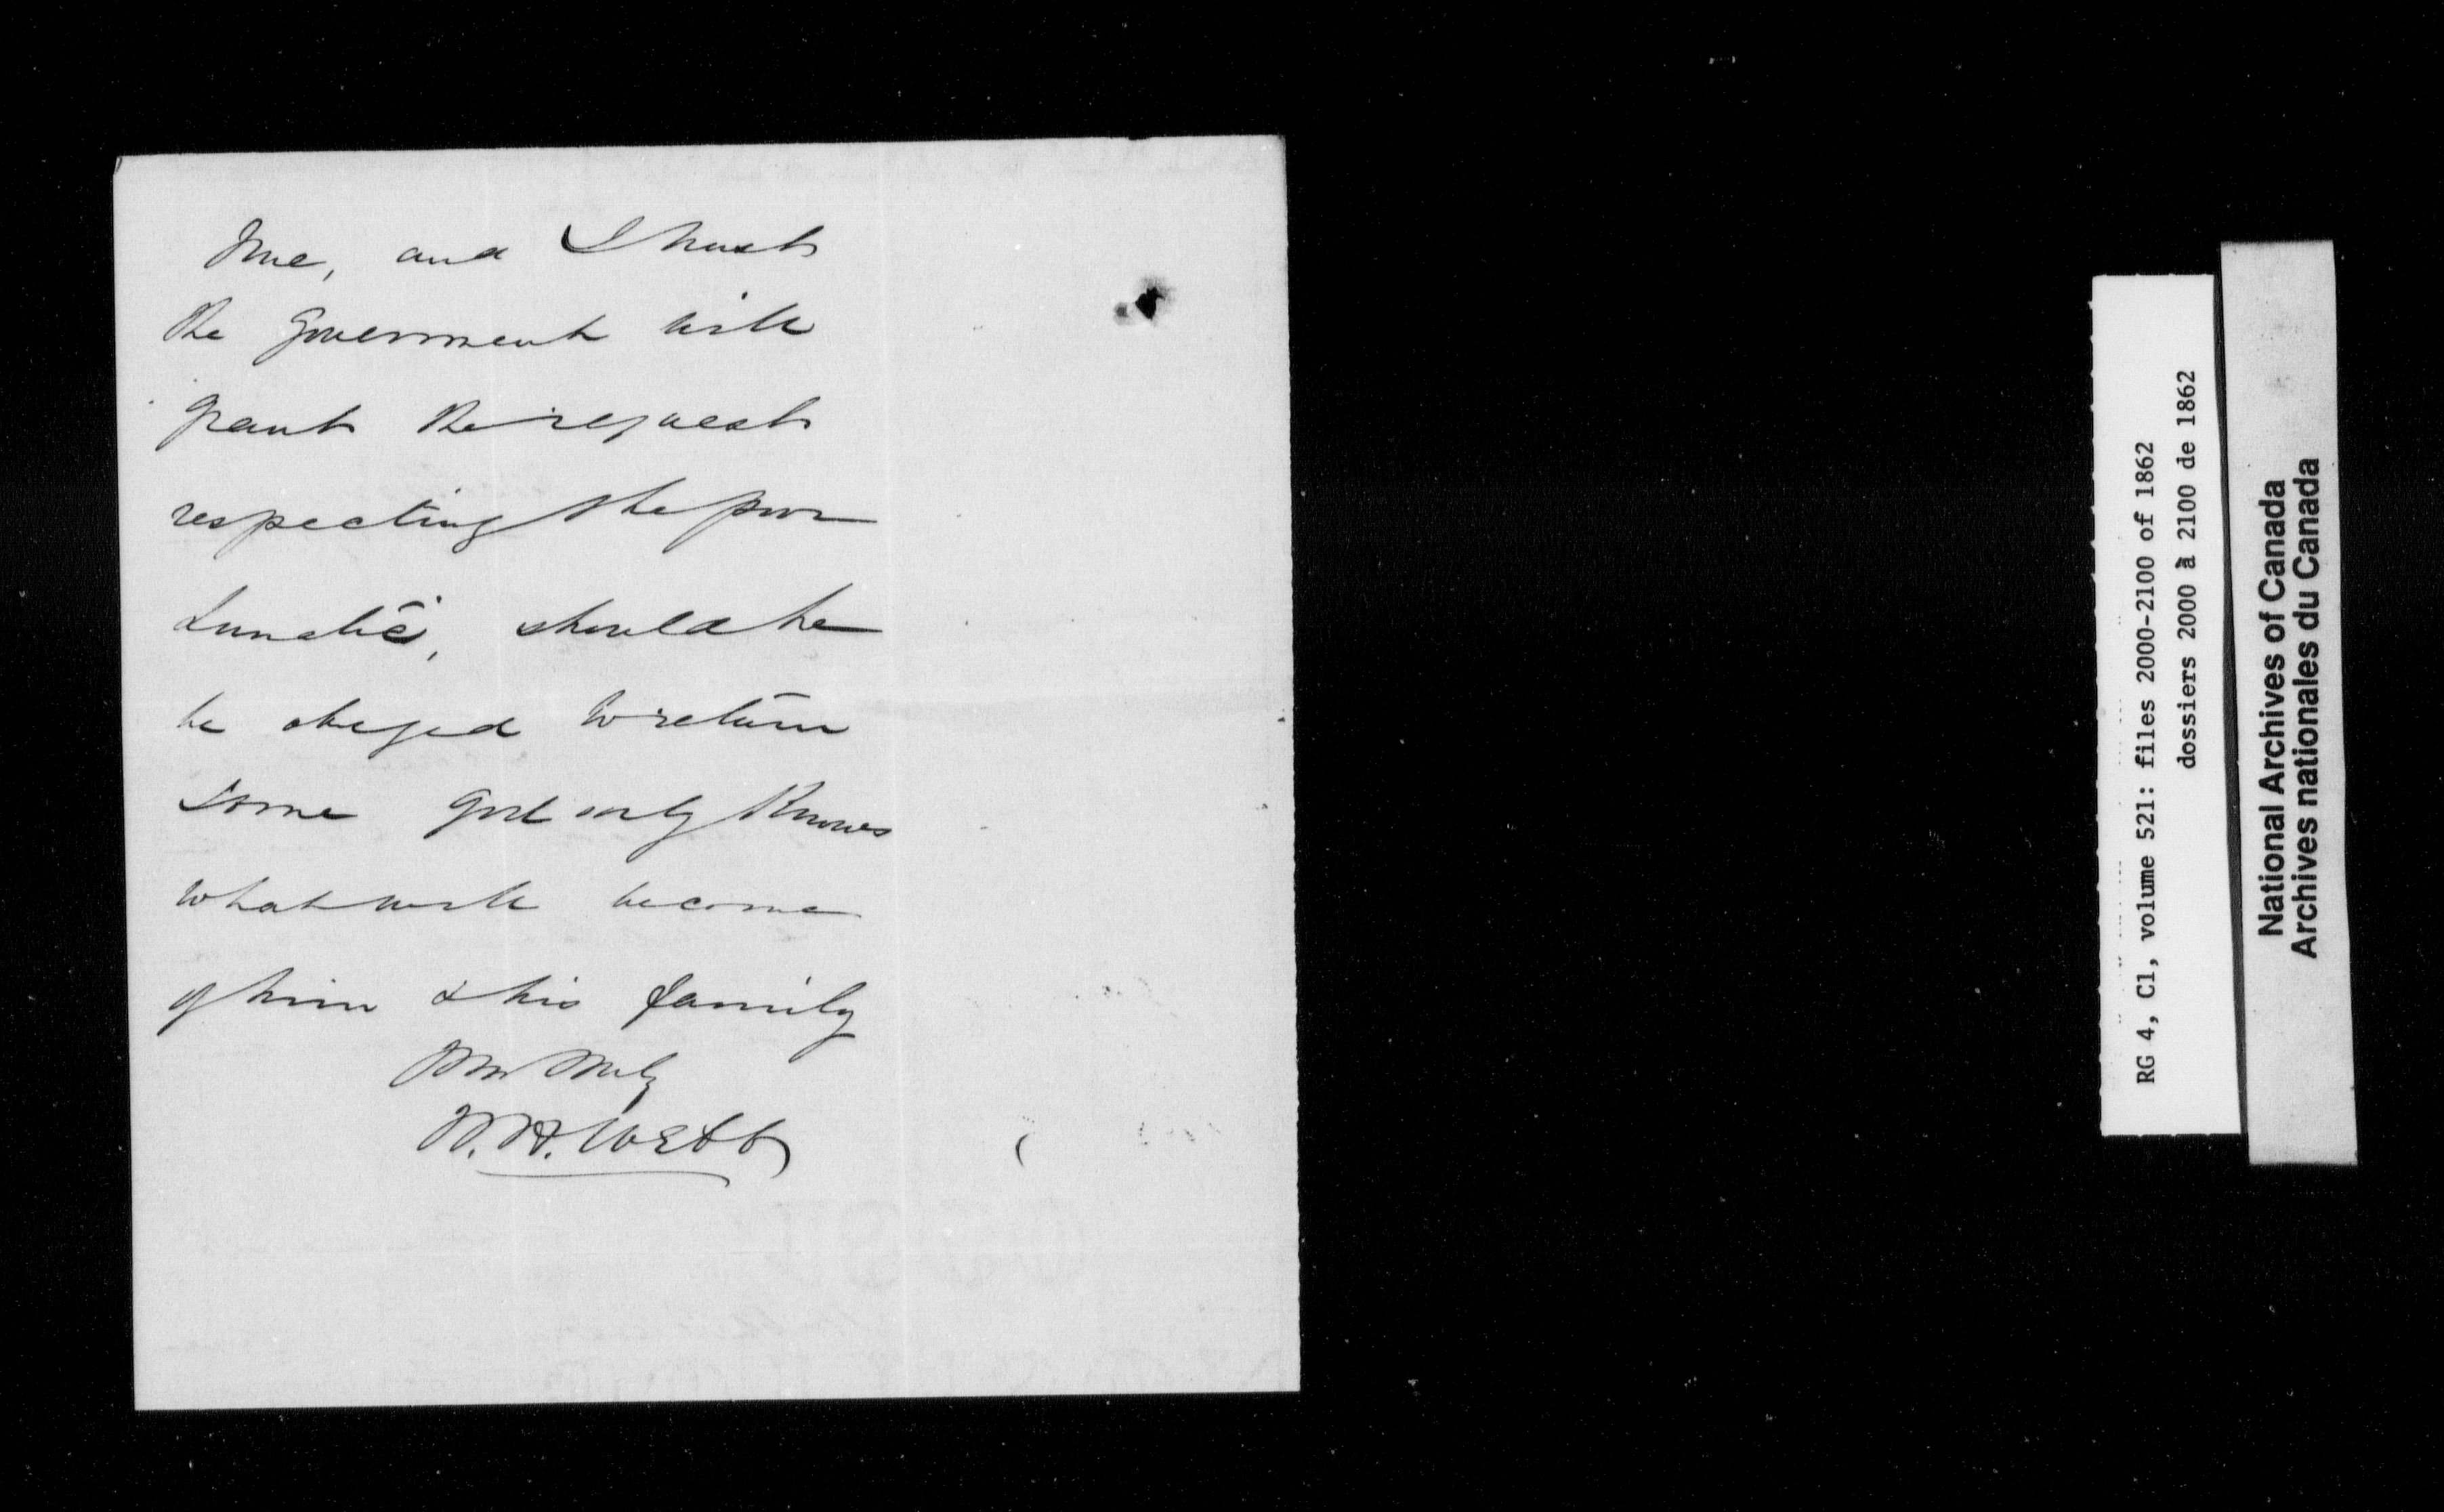 True, and I trust
the Government will
grant the request
respecting the poor
Lunatic, should he
be obliged to return
home God only knows
what will become
of him & his family
Yrs truly
W. H. Webb
RG 4, C1, volume 521: files 2000-2100 of 1862
dossiers 2000 à 2100 de 1862
National Archives of Canada
Archives nationales du Canada